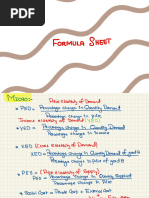 FORMULA SHEET
MICRO:-
Price elasticity of Demand
* PED = Percentage change in Quantity Demand
Percentage change in Price
Income elasticity of Demand (YED)
= Percentage change in Quantity Demand
Percentage change in Income
* XED (Cross elasticity of Demand)
XED = Percentage change in Quantity Demand of good A
Percentage change in price of good B
* PES = (Price elasticity of Supply)
PES = Percentage change in Quantity Supplied
Percentage change in Price